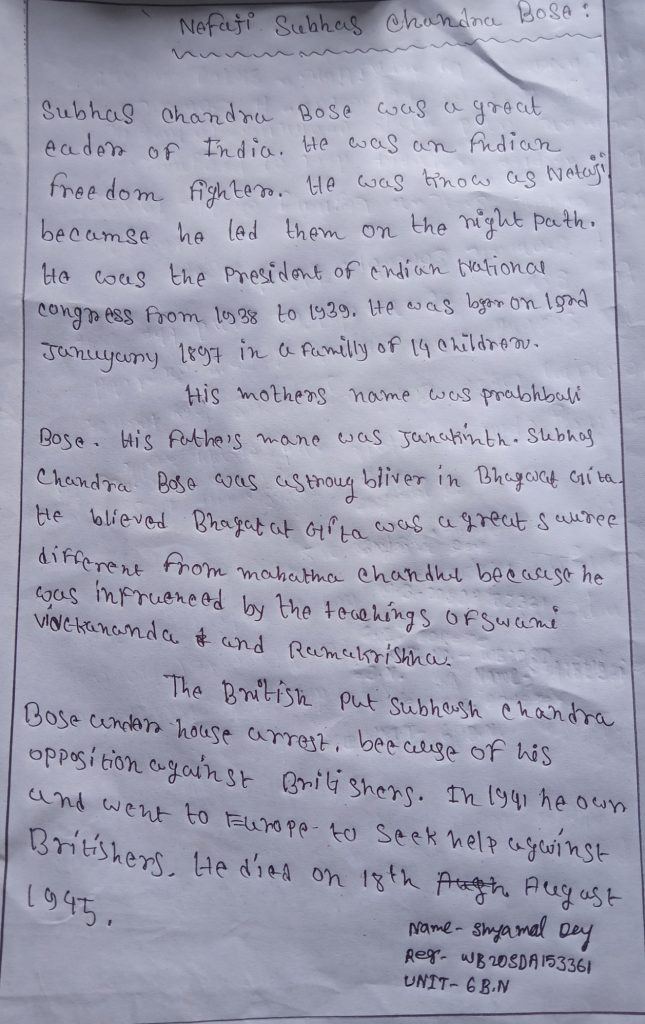 Netaji Subhas Chandra Bose :
Subhas chandra Bose was a great
eader of India. He was an Indian
freedom fighter. He was know as Netaji
becamse he led them on the right path.
He was the President of endian National
congress From 1938 to 1939. He was on
Januyany 1897 in a familly of 14 children.
His mothers name was prabhbati
Bose. His fathe's mane was Janakinth. Subhas
Chandra Bose was astroug bliver in Bhagwat Gita.
He blieved Bhagatat Gita was a great sauree
different from mahatma chandhul because he
was infrueneed by the teachings of swami
vivekananda and Ramakrishna.
The British put Subhash chandra
Bose under house arrest, because of his
opposition against Britishers. In 1941 he own
and went to Europe to seek help against
Britishers. He died on 18th August
1945.
Name - Shyamal Dey
Reg - WB20SDA153361
UNIT - 6 B.N